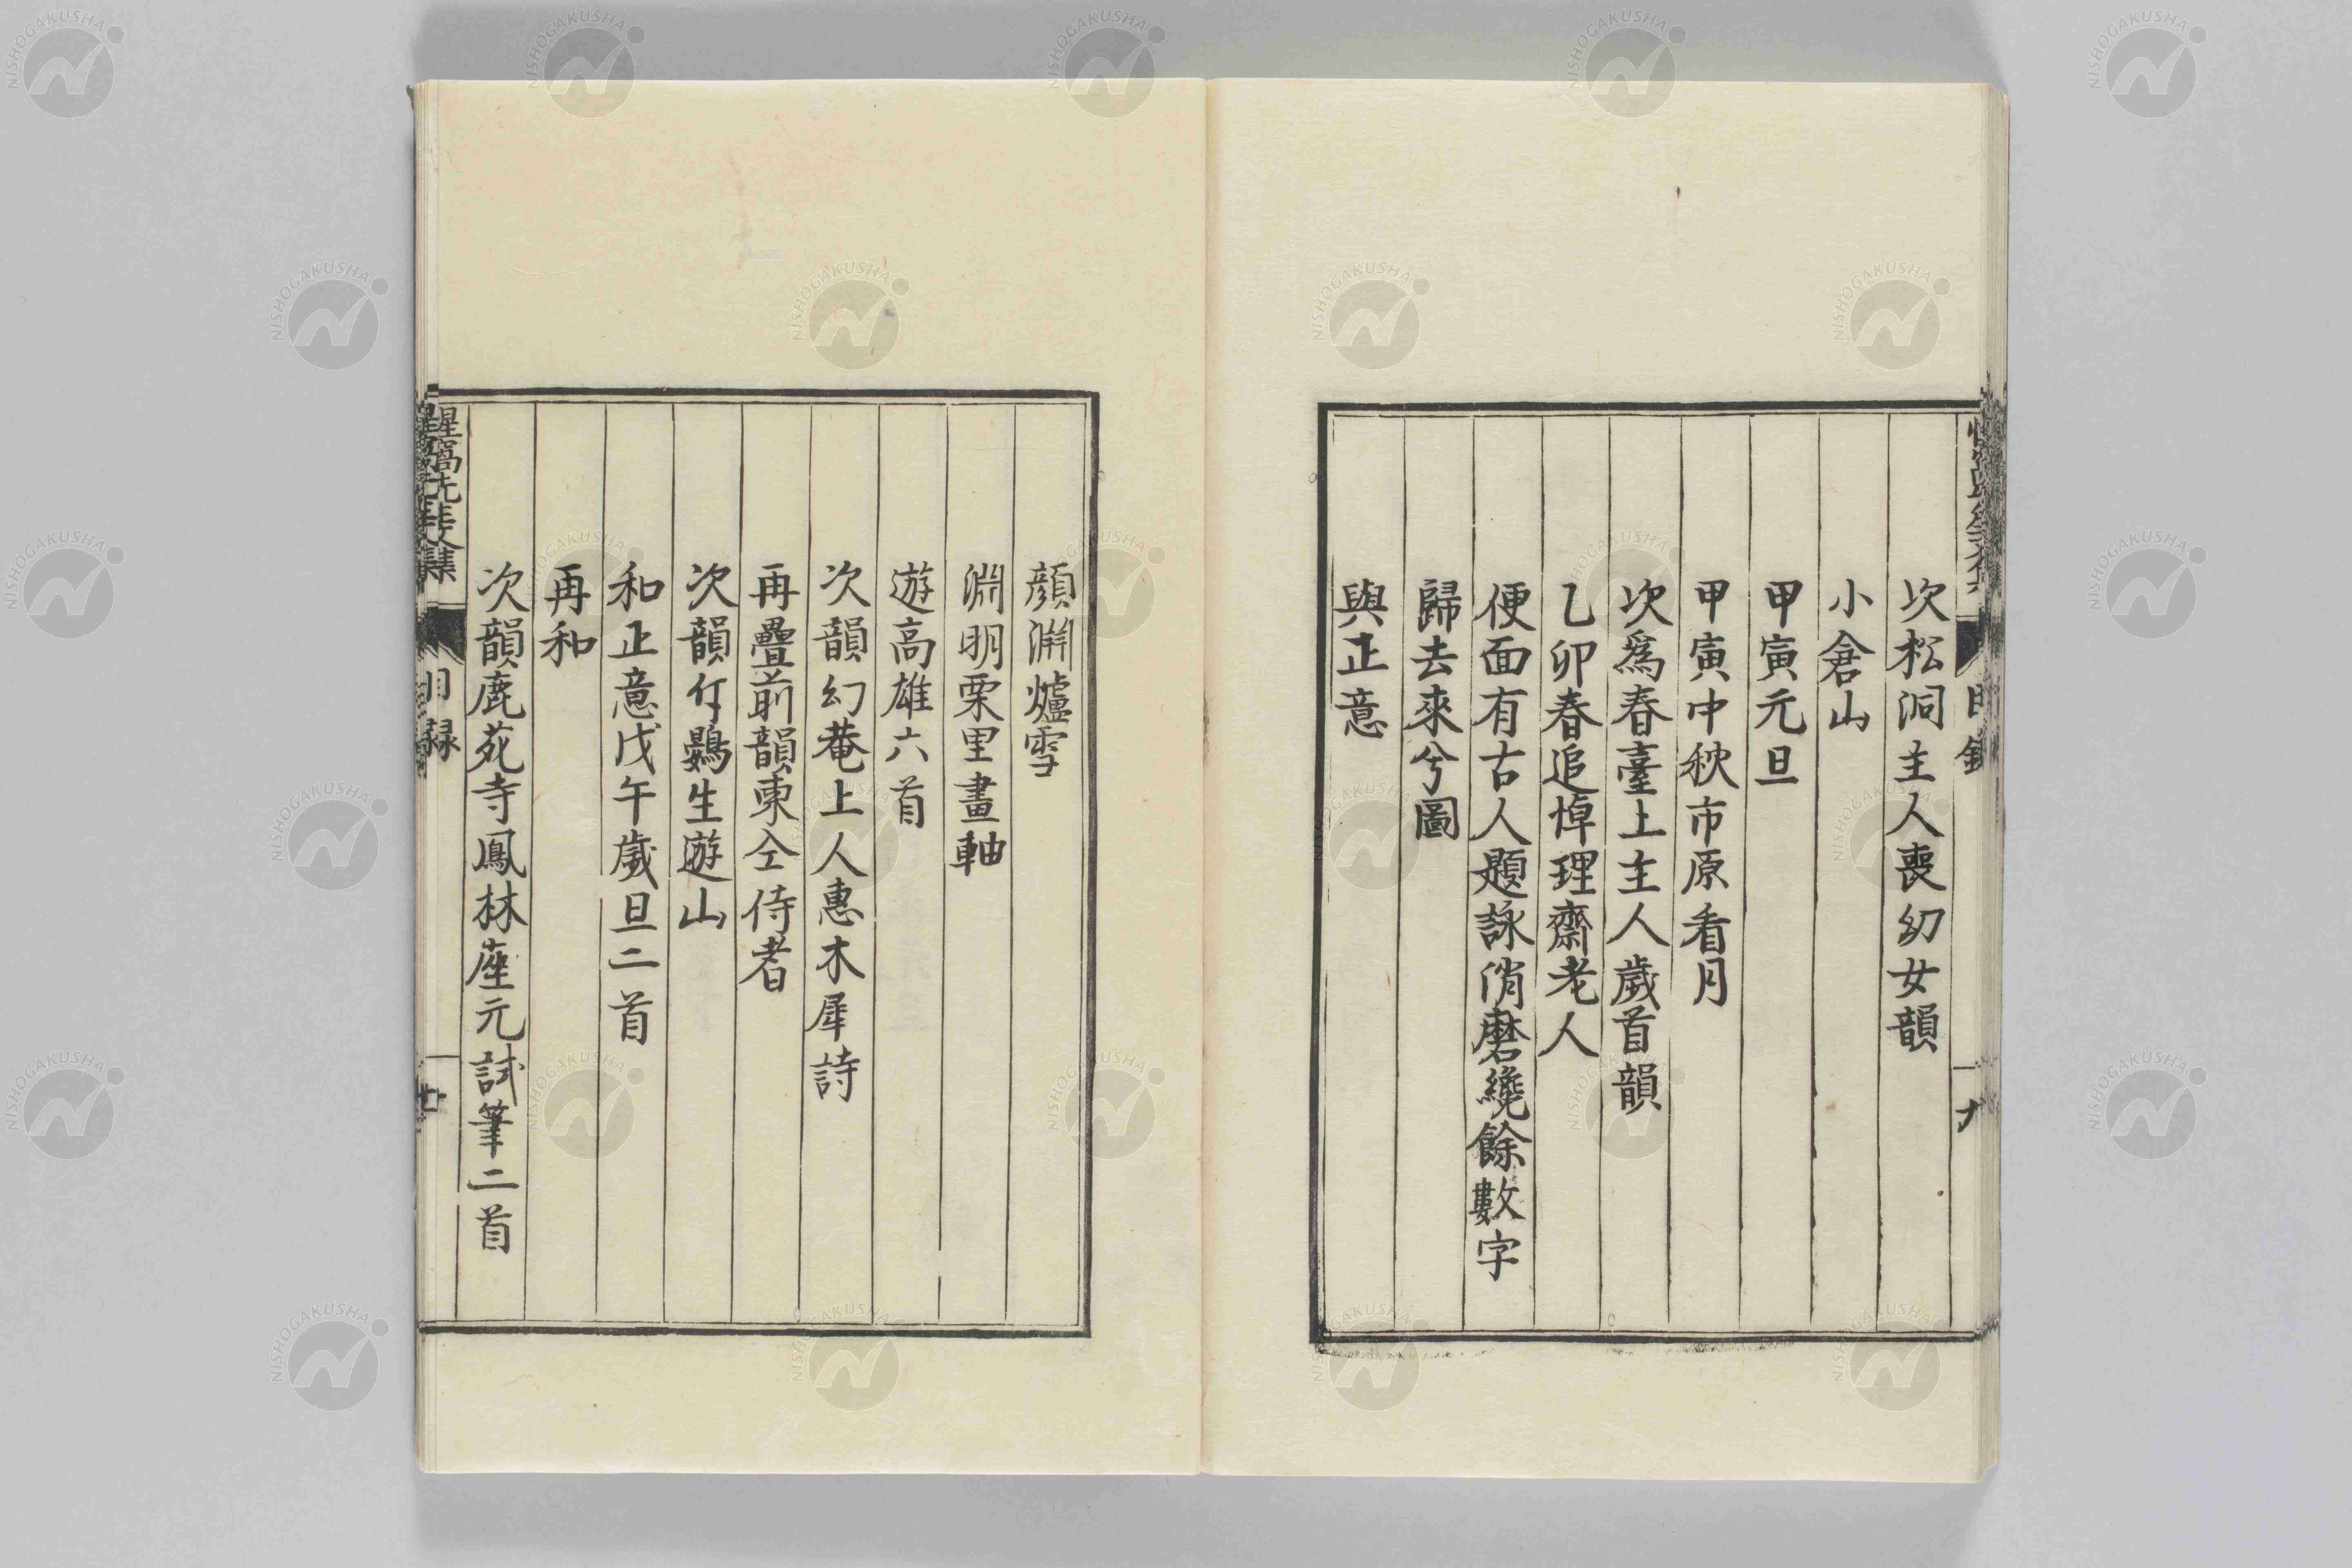 次松洞主人喪幼女韻
小倉山
甲寅元旦
甲寅中秋市原看月
次爲春臺上主人歲首韻
乙卯春追悼理齋老人
便面有古人題詠消磨纔餘數字
歸去來兮圖
與正意
目錄
顔淵爐雪
淵明栗里畫軸
遊高雄六首
次韻幻菴上人惠木犀詩
再疊前韻柬仝侍者
次韻竹鷄生遊山
和正意戊午歲旦二首
再和
次韻鹿苑寺鳳林座元試筆二首
惺窩先生文集
目録
廿
NISHOGAKUSHA